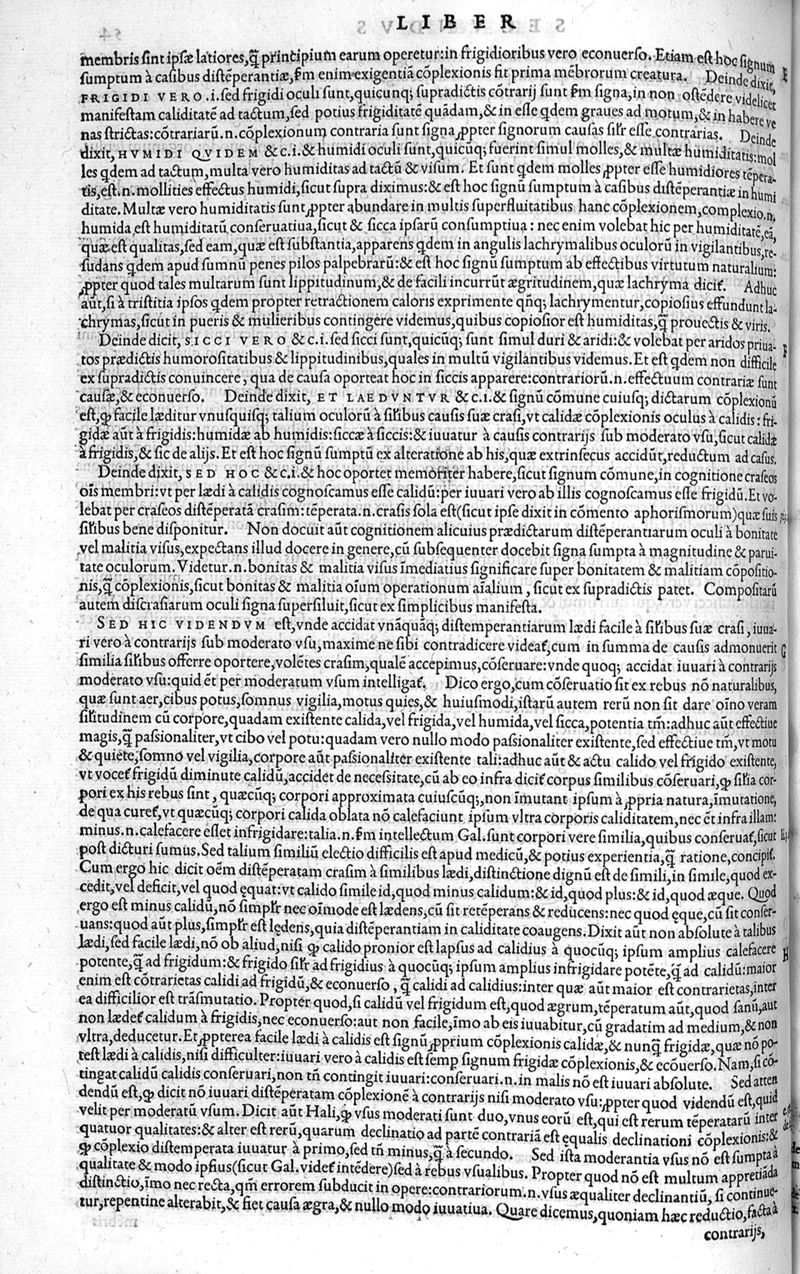 LIBER
membris sint ipsæ latiores, q̃ principium earum operetur: in frigidioribus vero econuerso. Etiam est hoc signum
sumptum à casibus distẽperantiæ, ẜm enim exigentiã cõplexionis fit prima mẽbrorum creatura. Deinde dixit,
FRIGIDI VERO .i. sed frigidi oculi sunt, quicunq; supradictis cõtrarij sunt ẜm signa, in non ostẽdere videlicet
manifestam caliditatẽ ad tactum, sed potius frigiditatẽ quãdam, & in esse qdem graues ad motum, & in habere ve
nas strictas: cõtrariarũ .n. cõplexionum contraria sunt signa, ꝓpter signorum causas sil'r esse contrarias. Deinde
dixit, HVMIDI QVIDEM &c .i. & humidi oculi sunt, quicũq; fuerint simul molles, & multæ humiditatis: mol
les qdem ad tactum, multa vero humiditas ad tactũ & visum. Et sunt qdem molles, ꝓpter esse humidiores tẽpera
tis, est .n. mollities effectus humidi, sicut supra diximus: & est hoc signũ sumptum à casibus distẽperantiæ in humi
ditate. Multæ vero humiditatis sunt, ꝓpter abundare in multis superfluitatibus hanc cõplexionem, complexio .n.
humida est humiditatũ conseruatiua, sicut & sicca ipsarũ consumptiua: nec enim volebat hic per humiditatẽ, eã,
quæ est qualitas, sed eam, quæ est substantia, apparens qdem in angulis lachrymalibus oculorũ in vigilantibus, re-
sudans qdem apud sumnũ penes pilos palpebrarũ: & est hoc signũ sumptum ab effectibus virtutum naturalium:
ꝓpter quod tales multarum sunt lippitudinum, & de facili incurrũt ægritudinem, quæ lachryma dicit͛. Adhuc
aũt, si à tristitia ipsos qdem propter retractionem caloris exprimente qñq; lachrymentur, copiosius effundunt la-
chrymas, sicut in pueris & mulieribus contingere videmus, quibus copiosior est humiditas, q̃ prouectis & viris.
Deinde dicit, SICCI VERO & c .i. sed sicci sunt, quicũq; sunt simul duri & aridi: & volebat per aridos priua-
tos prædictis humorositatibus & lippitudinibus, quales in multũ vigilantibus videmus. Et est qdem non difficile
ex supradictis conuincere, qua de causa oporteat hoc in siccis apparere: contrariorũ .n. effectuum contrariæ sunt
causæ, & econuerso. Deinde dixit, ET LAEDVNTVR &c .i. & signũ cõmune cuiusq; dictarum cõplexionũ
est, ꝙ facile læditur vnusquisq; talium oculorũ à sil'ibus causis suæ crasi, vt calidæ cõplexionis oculus à calidis: fri-
gidæ aũt à frigidis: humidæ ab humidis: siccæ à siccis: & iuuatur à causis contrarijs sub moderato vsu, sicut calida
à frigidis, & sic de alijs. Et est hoc signũ sumptũ ex alteratione ab his, quæ extrinsecus accidũt, reductum ad casus.
Deinde dixit, SED HOC & c .i. & hoc oportet memoriter habere, sicut signum cõmune, in cognitione craseos
ois membri: vt per lædi à calidis cognoscamus esse calidũ: per iuuari vero ab illis cognoscamus esse frigidũ. Et vo-
lebat per craseos distẽperatã crasim: tẽperata .n. crasis sola est (sicut ipse dixit in cõmento aphorismorum) quæ suis
sil'ibus bene disponitur. Non docuit aũt cognitionem alicuius prædictarum distẽperantiarum oculi à bonitate
vel malitia visus, expectans illud docere in genere, cũ subsequenter docebit signa sumpta à magnitudine & parui-
tate oculorum. Videtur .n. bonitas & malitia visus ĩmediatius significare super bonitatem & malitiam cõpositio-
nis, q̃ cõplexionis, sicut bonitas & malitia oĩum operationum aĩalium, sicut ex supradictis patet. Compositarũ
autem discrasiarum oculi signa supersiluit, sicut ex simplicibus manifesta.
SED HIC VIDENDVM est, vnde accidat vnãquãq; distemperantiarum lædi facile à sil'ibus suæ crasi, iuua-
ri vero à contrarijs sub moderato vsu, maxime ne sibi contradicere videat͛, cum in summa de causis admonuerit
similia sil'ibus offerre oportere, volẽtes crasim, qualẽ accepimus, cõseruare: vnde quoq; accidat iuuari à contrarijs
moderato vsu: quid ẽt per moderatum vsum intelligat͛. Dico ergo, cum cõseruatio sit ex rebus nõ naturalibus,
quæ sunt aer, cibus potus, somnus vigilia, motus quies, & huiusmodi, istarũ autem rerũ non sit dare oĩno veram
sil'itudinem cũ corpore, quadam existente calida, vel frigida, vel humida, vel sicca, potentia tm̃: adhuc aũt effectiue
magis, q̃ passionaliter, vt cibo vel potu: quadam vero nullo modo passionaliter existente, sed effectiue tm̃, vt motu
& quiete, somno vel vigilia, corpore aũt passionaliter existente tali: adhuc aũt & actu calido vel frigido existente,
vt vocet͛ frigidũ diminute calidũ, accidet de necessitate, cũ ab eo infra dicit͛ corpus similibus cõseruari, ꝙ sil'ia cor-
pori ex his rebus sint, quæcũq; corpori approximata cuiuscũq;, non ĩmutant ipsum à ꝓpria natura, ĩmutatione,
de qua curet͛, vt quæcũq; corpori calida oblata nõ calefaciunt ipsum vltra corporis caliditatem, nec ẽt infra illam:
minus .n. calefacere esset infrigidare: talia .n. ẜm intellectum Gal. sunt corpori vere similia, quibus conseruat͛, sicut
post dicturi sumus. Sed talium similiũ electio difficilis est apud medicũ, & potius experientia, q̃ ratione, concipit͛.
Cum ergo hic dicit oẽm distẽperatam crasim à similibus lædi, distinctione dignũ est de simili, in simile, quod ex-
cedit, vel deficit, vel quod ęquat: vt calido simile id, quod minus calidum: & id, quod plus: & id, quod æque. Quod
ergo est minus calidũ, nõ simpl'r nec oĩmode est lædens, cũ sit retẽperans & reducens: nec quod ęque, cũ sit conser-
uans: quod aũt plus, simpl'r est lędens, quia distẽperantiam in caliditate coaugens. Dixit aũt non absolute à talibus
lædi, sed facile lædi, nõ ob aliud, nisi ꝙ calido pronior est lapsus ad calidius à quocũq; ipsum amplius calefacere
potente, q̃ ad frigidum: & frigido sil'r ad frigidius à quocũq; ipsum amplius infrigidare potẽte, q̃ ad calidũ: maior
enim est cõtrarietas calidi ad frigidũ, & econuerso, q̃ calidi ad calidius: inter quæ aũt maior est contrarietas, inter
ea difficilior est trãsmutatio. Propter quod, si calidũ vel frigidum est, quod ægrum, tẽperatum aũt, quod sanũ, aut
non lædet͛ calidum à frigidis, nec econuerso: aut non facile, ĩmo ab eis iuuabitur, cũ gradatim ad medium, & non
vltra, deducetur. Et, ꝓpterea facile lædi à calidis est signũ, ꝓprium cõplexionis calidæ, & nunq̃ frigidæ, quæ nõ po-
test lædi à calidis, nisi difficulter: iuuari vero à calidis est semp signum frigidæ cõplexionis, & ecõuerso. Nam, si cõ-
tingat calidũ calidis conseruari, non tñ contingit iuuari: conseruari .n. in malis nõ est iuuari absolute. Sed atten
dendũ est, ꝙ dicit nõ iuuari distẽperatam cõplexionẽ à contrarijs nisi moderato vsu: ꝓpter quod videndũ est, quid
velit per moderatũ vsum. Dicit aũt Hali, ꝙ vsus moderati sunt duo, vnus eorũ est, qui est rerum tẽperatarũ inter
quatuor qualitates: & alter est rerũ, quarum declinatio ad partẽ contrariã est equalis declinationi cõplexionis: &
ꝙ cõplexio distemperata iuuatur à primo, sed tñ minus, q̃ à secundo. Sed ista moderantia vsus nõ est sumpta à
qualitate & modo ipsius (sicut Gal. videt͛ intẽdere) sed à rebus vsualibus. Propter quod nõ est multum appretiãda
distinctio, ĩmo nec recta, qm̃ errorem subducit in opere: contrariorum .n. vsus æqualiter declinantiũ, si continue-
tur, repentine alterabit, & fiet causa ægra, & nullo modo iuuatiua. Quare dicemus, quoniam hæc reductio, facta à
contrarijs,